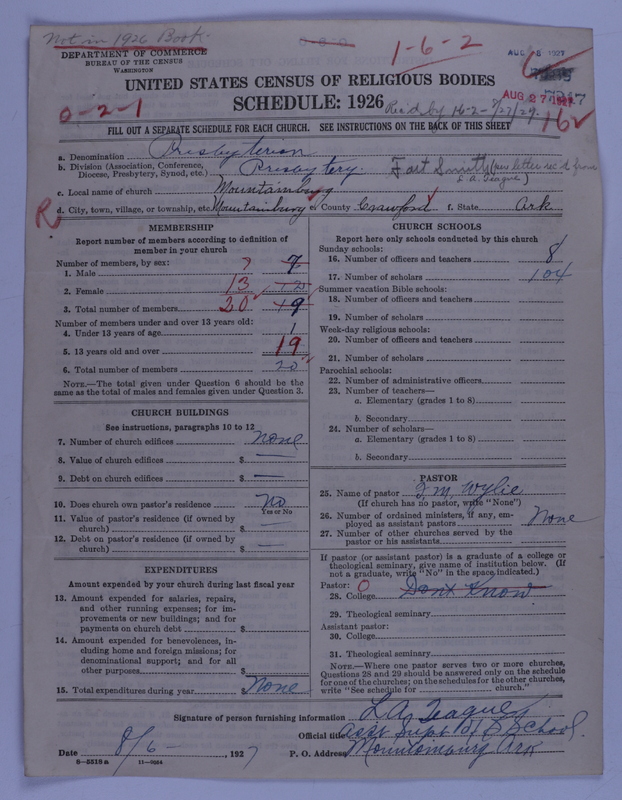 Not in 1926 Book.
DEPARTMENT OF COMMERCE
BUREAU OF THE CENSUS
WASHINGTON
1-6-2
AUG 8 1927
UNITED STATES CENSUS OF RELIGIOUS BODIES
SCHEDULE: 1926
0-2-1
AUG 27 1927
16
FILL OUT A SEPARATE SCHEDULE FOR EACH CHURCH. SEE INSTRUCTIONS ON THE BACK OF THIS SHEET
a. Denomination Presbyterian
b. Division (Association, Conference, Diocese, Presbytery, Synod, etc.) Presbytery. Fort Smith (per letter rec'd from L. A. Teague)
c. Local name of church Mountainburg
R
d. City, town, village, or township, etc. Mountainburg e. County Crawford f. State Ark
MEMBERSHIP
Report number of members according to definition of
member in your church
Number of members, by sex:
1. Male 7 7
2. Female 13 12
3. Total number of members 20 19
Number of members under and over 13 years old:
4. Under 13 years of age 1
5. 13 years old and over 19
6. Total number of members 20
NOTE.—The total given under Question 6 should be the
same as the total of males and females given under Question 3.
CHURCH BUILDINGS
See instructions, paragraphs 10 to 12
7. Number of church edifices none
8. Value of church edifices $ —
9. Debt on church edifices $ —
10. Does church own pastor's residence No
Yes or No
11. Value of pastor's residence (if owned by
church) $
12. Debt on pastor's residence (if owned by
church) $ —
EXPENDITURES
Amount expended by your church during last fiscal year
13. Amount expended for salaries, repairs,
and other running expenses; for im-
provements or new buildings; and for
payments on church debt $
14. Amount expended for benevolences, in-
cluding home and foreign missions; for
denominational support; and for all
other purposes $
15. Total expenditures during year $ None
CHURCH SCHOOLS
Report here only schools conducted by this church
Sunday schools:
16. Number of officers and teachers 8
17. Number of scholars 104
Summer vacation Bible schools:
18. Number of officers and teachers
19. Number of scholars
Week-day religious schools:
20. Number of officers and teachers
21. Number of scholars
Parochial schools:
22. Number of administrative officers
23. Number of teachers—
a. Elementary (grades 1 to 8)
b. Secondary
24. Number of scholars—
a. Elementary (grades 1 to 8)
b. Secondary
PASTOR
25. Name of pastor J. M. Wylie
(If church has no pastor, write "None")
26. Number of ordained ministers, if any, em-
ployed as assistant pastors None
27. Number of other churches served by the
pastor or his assistants
If pastor (or assistant pastor) is a graduate of a college or
theological seminary, give name of institution below. (If
not a graduate, write "No" in the space indicated.)
Pastor: 0
28. College Dont Know
29. Theological seminary
Assistant pastor:
30. College
31. Theological seminary
NOTE.—Where one pastor serves two or more churches,
Questions 28 and 29 should be answered only on the schedule
for one of the churches; on the schedules for the other churches,
write "See schedule for church."
Signature of person furnishing information L. A. Teague
Official title Asst Supt of S School.
Date 8/6 - 1927 P. O. Address Mountainburg Ark
8—5518a 11—9884